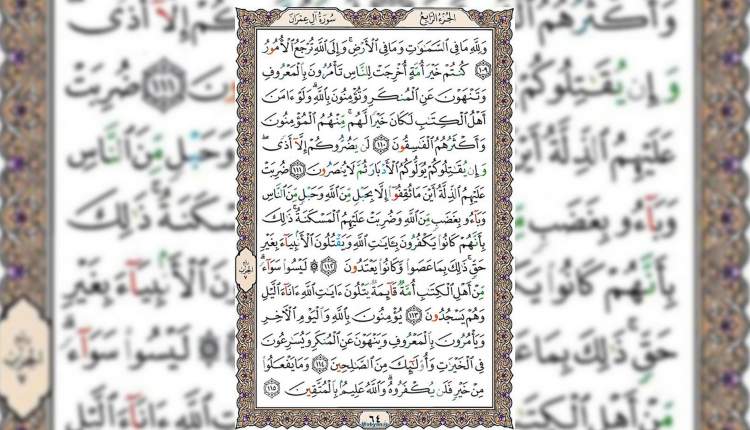 سُورَةُ آلِ عِمْرَانَ
الجُزْءُ الرَّابِعُ
وَلِلَّهِ مَا فِي ٱلسَّمَٰوَٰتِ وَمَا فِي ٱلْأَرْضِۚ وَإِلَى ٱللَّهِ تُرْجَعُ ٱلْأُمُورُ
١٠٩ كُنتُمْ خَيْرَ أُمَّةٍ أُخْرِجَتْ لِلنَّاسِ تَأْمُرُونَ بِٱلْمَعْرُوفِ
وَتَنْهَوْنَ عَنِ ٱلْمُنكَرِ وَتُؤْمِنُونَ بِٱللَّهِۗ وَلَوْ ءَامَنَ
أَهْلُ ٱلْكِتَٰبِ لَكَانَ خَيْرًا لَّهُمۚ مِّنْهُمُ ٱلْمُؤْمِنُونَ
وَأَكْثَرُهُمُ ٱلْفَٰسِقُونَ ١١٠ لَن يَضُرُّوكُمْ إِلَّآ أَذًىۖ
وَإِن يُقَٰتِلُوكُمْ يُوَلُّوكُمُ ٱلْأَدْبَارَ ثُمَّ لَا يُنصَرُونَ ١١١ ضُرِبَتْ
عَلَيْهِمُ ٱلذِّلَّةُ أَيْنَ مَا ثُقِفُوٓا۟ إِلَّا بِحَبْلٍ مِّنَ ٱللَّهِ وَحَبْلٍ مِّنَ ٱلنَّاسِ
وَبَآءُو بِغَضَبٍ مِّنَ ٱللَّهِ وَضُرِبَتْ عَلَيْهِمُ ٱلْمَسْكَنَةُۚ ذَٰلِكَ
بِأَنَّهُمْ كَانُوا۟ يَكْفُرُونَ بِـَٔايَٰتِ ٱللَّهِ وَيَقْتُلُونَ ٱلْأَنۢبِيَآءَ بِغَيْرِ
حَقٍّۚ ذَٰلِكَ بِمَا عَصَوا۟ وَّكَانُوا۟ يَعْتَدُونَ ١١٢ ۞ لَيْسُوا۟ سَوَآءًۗ
مِّنْ أَهْلِ ٱلْكِتَٰبِ أُمَّةٌ قَآئِمَةٌ يَتْلُونَ ءَايَٰتِ ٱللَّهِ ءَانَآءَ ٱلَّيْلِ
وَهُمْ يَسْجُدُونَ ١١٣ يُؤْمِنُونَ بِٱللَّهِ وَٱلْيَوْمِ ٱلْءَاخِرِ
وَيَأْمُرُونَ بِٱلْمَعْرُوفِ وَيَنْهَوْنَ عَنِ ٱلْمُنكَرِ وَيُسَٰرِعُونَ
فِي ٱلْخَيْرَٰتِ وَأُو۟لَٰٓئِكَ مِنَ ٱلصَّٰلِحِينَ ١١٤ وَمَا يَفْعَلُوا۟
مِنْ خَيْرٍ فَلَن يُكْفَرُوهُۗ وَٱللَّهُ عَلِيمٌۢ بِٱلْمُتَّقِينَ ١١٥
٦٤